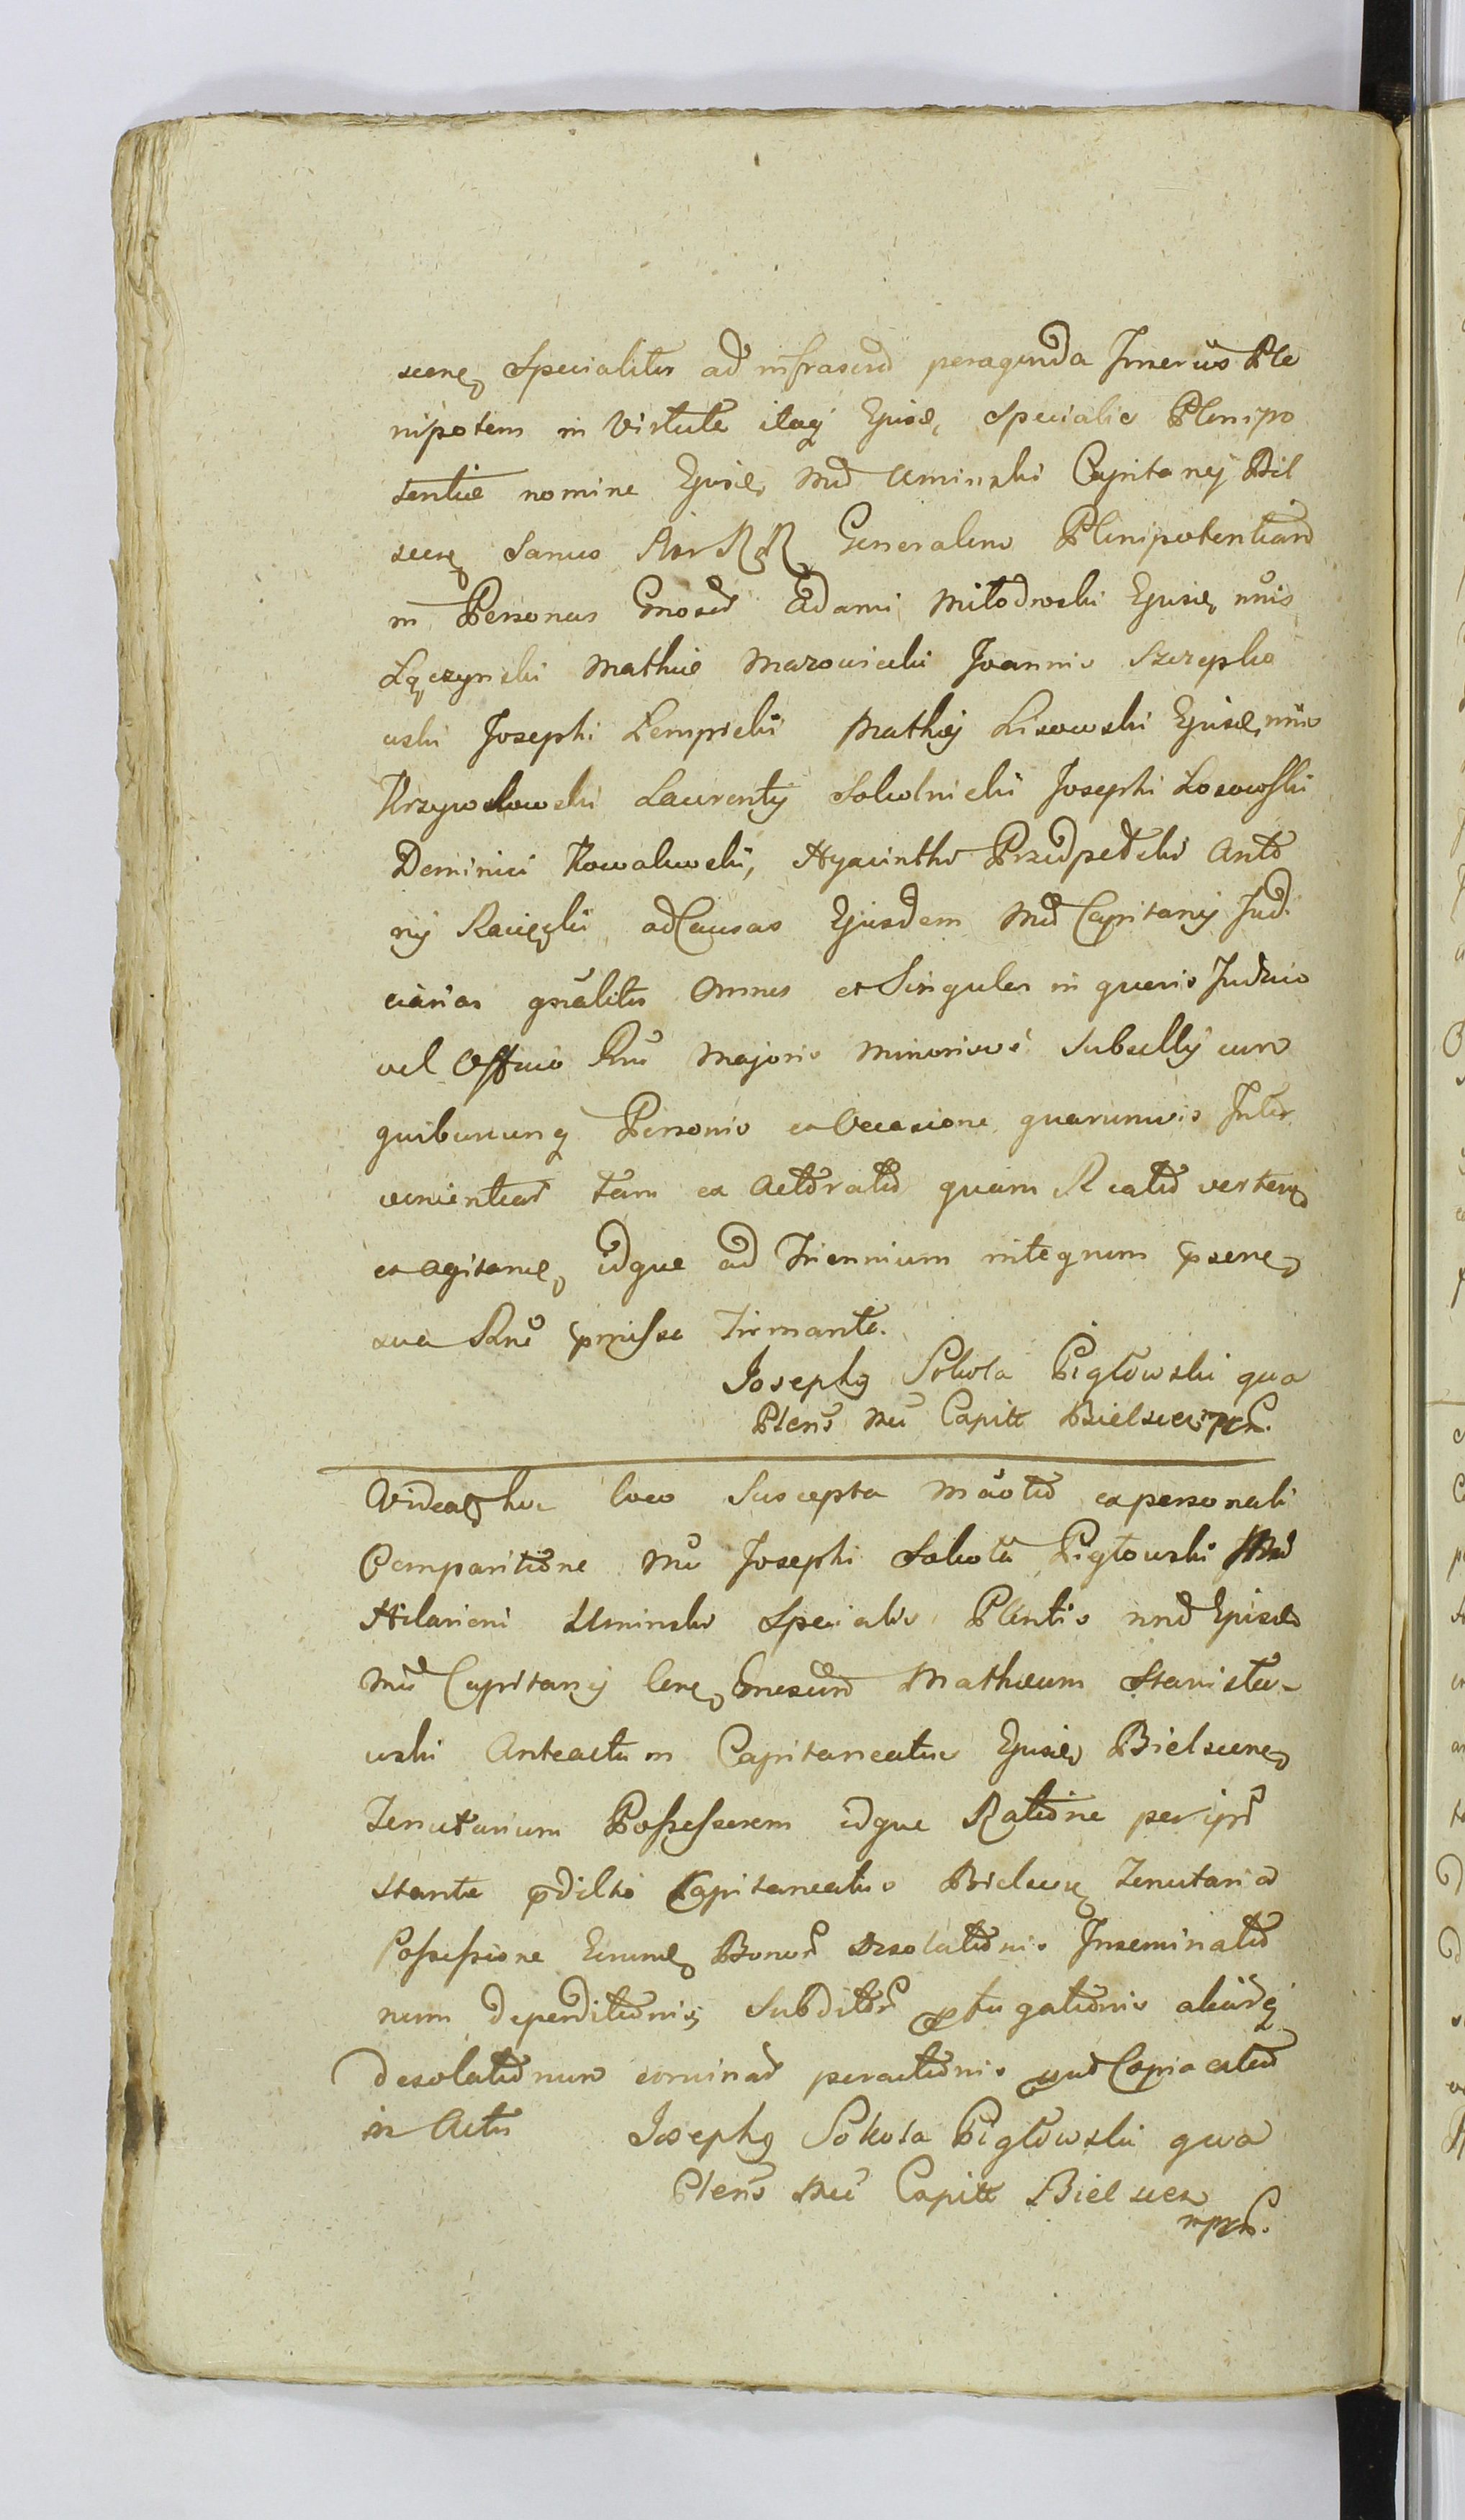 scens Specialiter ad infrascrd peragenda Imerius Ple
nipotens in Virtute itaq Ejusd, Specialis Plenipo
tentiæ nomine Ejusd, Md Uminski Capitanej Bil
scens Sanus Generalem Plenipotentiam
in Personas Gnosd Adami Miłodroski Ejusd, nnis
Lączynski Mathiæ Mazowiecki Joannis Szczepko
wski Josephi Lempicki Mathiæ Lisowski Ejusd, nnis
Krzywosłowski Laurentij Sokolnicki Josephi Łosowsski
Dominici Kowalewski, Hyacinthi Przedpełski Anto
nij Racięski ad Causas Ejusdem Md Capitanej Judi
ciarias gnaliter Omnes et Singulas in quovis Judicio
vel Officio Rni Majoris Minorisvé Subsellij cum
quibuscunq Personis ex Occasione quarumvis Inter
venientiar tam ex Actoratu quam Reatu verten,
ex agitand, idque ad Triennium integrum psens,
sua Sane pmissa Firmante.
Josephg Sokola Pigłowski qua
Plens Mci Capitt Bielscen mpr.
Videat hoc loco Suscepta Maotio ex personali
Comparitione Mci Josephi Sokola Pigłowski Md
Hilarioni Uminski Specialis Plentis nnd Ejusd
Md Capitanej Mathæum Stanisła-
wski Anteactum Capitaneatus Ejusd, Bielscens
Tenutarium Possessorem idque Ratione per ipsu
stante pdicto Capitaneatus Bielscens Tenutaria
Possessione Bonor Desolationis Inseminatio
num deperditionis, Subditor pfugationis aliarq
desolationum peractionis Copia
in Actis Josephg Sokola Pigłowski qua
Plens Mci Capitt Bielscen
mpr.